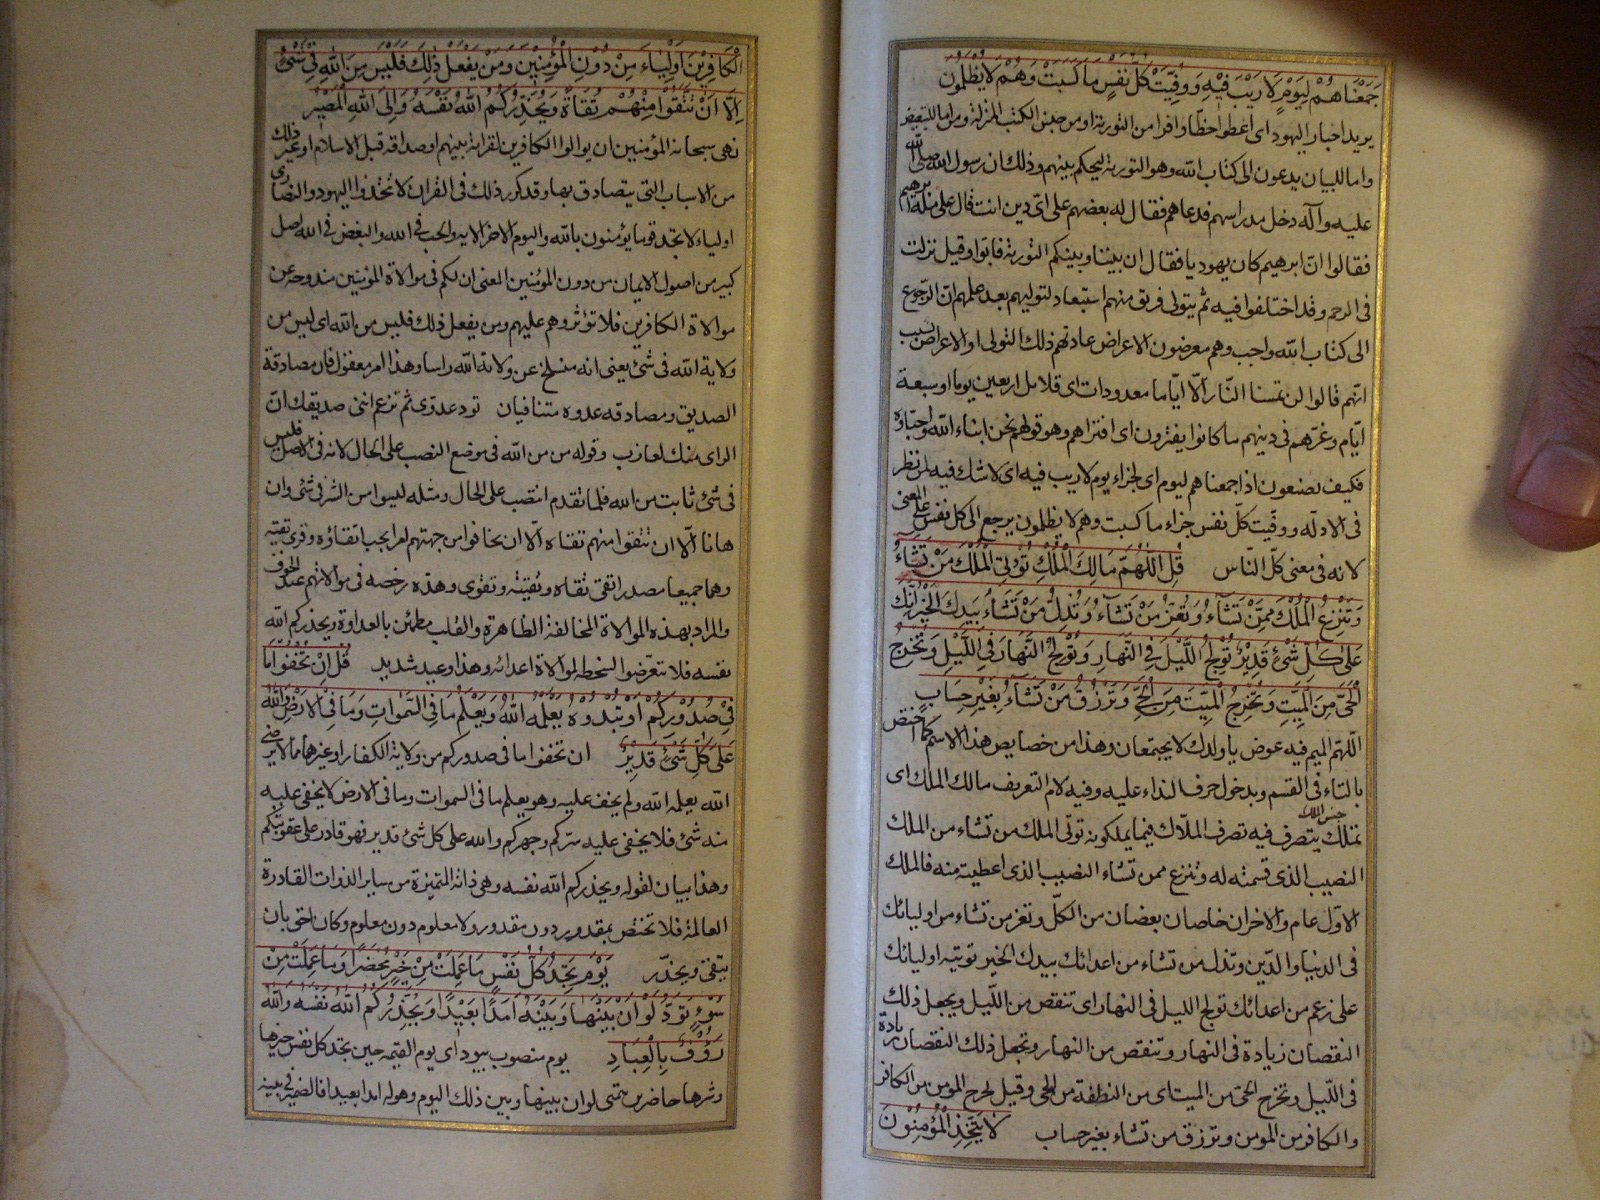 جَمَعْنَاهُمْ لِيَوْمٍ لَا رَيْبَ فِيْهِ وَوُفِّيَتْ كُلُّ نَفْسٍ مَا كَسَبَتْ وَهُمْ لَا يُظْلَمُونَ
يريد احبار اليهود اى اعطوا حظا وافرا من التورية او من جنس الكتب المنزلة ومن اما للتبعيض
واما للبيان يدعون الى كتاب الله وهو التورية ليحكم بينهم وذلك ان رسول الله صلى الله
عليه وآله دخل مدراسهم فدعاهم فقال له بعضهم على اىّ دين انت قال على ملة ابرهيم
فقالوا انّ ابرهيم كان يهوديا فقال ان بيننا وبينكم التورية فابوا وقيل نزلت
فى الرجم وقد اختلفوا فيه ثم يتولى فريق منهم استبعاد لتوليهم بعد علمهم انّ الرجوع
الى كتاب الله واجب وهم معرضون الاعراض عادتهم ذلك التولى او الاعراض بسبب
انهم قالوا لن تمسنا النّار الّا ايّاما معدودات اى قلائل اربعين يوما او سبعة
ايّام وغرّهم فى دينهم ما كانوا يفترون اى افتراهم وهو قولهم نحن ابناء الله واحباؤه
فكيف يصنعون اذا جمعناهم ليوم اى لجزاء يوم لا ريب فيه اى لا شك فيه لمن نظر
فى الادلّه ووفّيت كلّ نفس جزاء ما كسبت وهم لا يظلمون يرجع الى كل نفس على المعنى
لانه فى معنى كلّ النّاس قُلِ اللّٰهُمَّ مَالِكَ الْمُلْكِ تُؤْتِى الْمُلْكَ مَنْ تَشَآءُ
وَتَنْزِعُ الْمُلْكَ مِمَّنْ تَشَآءُ وَتُعِزُّ مَنْ تَشَآءُ وَتُذِلُّ مَنْ تَشَاءُ بِيَدِكَ الْخَيْرُ اِنَّكَ
عَلٰى كُلِّ شَىْءٍ قَدِيْرٌ تُوْلِجُ اللَّيْلَ فِى النَّهَارِ وَتُوْلِجُ النَّهَارَ فِى اللَّيْلِ وَتُخْرِجُ
الْحَىَّ مِنَ الْمَيِّتِ وَتُخْرِجُ الْمَيِّتَ مِنَ الْحَىِّ وَتَرْزُقُ مَنْ تَشَآءُ بِغَيْرِ حِسَابٍ
اللّهمّ الميم فيه عوض يا ولذلك لا يجتمعان وهذا من خصايص هذا الاسم كما اختص
بالتاء فى القسم وبدخول حرف النداء عليه وفيه لام التعريف مالك الملك اى
تملك جنس الملك يتصرف فيه تصرف الملّاك فيما يملكونه تؤتى الملك من تشاء من الملك
النصيب الذى قسمته له وتنزع ممن تشاء النصيب الذى اعطيته منه فالملك
الاوّل عام والاخران خاصان بعضان من الكلّ وتعز من تشاء من اوليائك
فى الدنيا والدّين وتذل من تشاء من اعدائك بيدك الخير تؤتيه اوليائك
على زعم من اعدائك تولج الليل فى النهار اى تنقص من اللّيل ويجعل ذلك
النقصان زيادة فى النهار وتنقص من النهار وتجعل ذلك النقصان زيادة
فى اللّيل وتخرج الحىّ من الميت اى من النطفة من الحى وقيل تخرج المومن من الكافر
والكافر من المومن وترزق من تشاء بغير حساب لَا يَتَّخِذِ الْمُؤْمِنُوْنَ
الْكَافِرِيْنَ اَوْلِيَاءَ مِنْ دُوْنِ الْمُؤْمِنِيْنَ وَمَنْ يَفْعَلْ ذٰلِكَ فَلَيْسَ مِنَ اللّٰهِ فِىْ شَىْءٍ
اِلَّا اَنْ تَتَّقُوْا مِنْهُمْ تُقَاةً وَيُحَذِّرُكُمُ اللّٰهُ نَفْسَهُ وَاِلَى اللّٰهِ الْمَصِيْرُ
نهى سبحانه المؤمنين ان يوالوا الكافرين لقرابة بينهم او صداقة قبل الاسلام او غير ذلك
من الاسباب التى يتصادق بها وقد كرر ذلك فى القران لا تتخذوا اليهود والنصارى
اولياء لا تجد قوما يؤمنون بالله واليوم الاخر الاية والحب فى الله والبغض فى الله اصل
كبير من اصول الايمان من دون المؤمنين المعنى ان لكم فى موالاة المؤمنين مندوحة عن
موالاة الكافرين فلا تؤثروهم عليهم ومن يفعل ذلك فليس من الله اى ليس من
ولاية الله فى شىء يعنى انه منسلخ عن ولاية الله راسا وهذا امر معقول فان مصادقة
الصديق ومصادقه عدوه متنافيان تود عدوّى ثم تزعم اننى صديقك انّ
الراى منك لعازب وقوله من من الله فى موضع النصب على الحال لانه فى الاصل فليس
فى شىء ثابت من الله فلما تقدم انتصب على الحال ومثله ليسوا من الشر فى شىء وان
هانا الّا ان تتقوا منهم تقاة الّا ان تخافوا من جهتهم امرا يجب اتقاؤه وقرى تقية
وهما جميعا مصدر اتقى تقاة وتقيتة وتقوى وهذه رخصه فى موالاتهم عند الخوف
والمراد بهذه الموالاة المخالفة الظاهرة والقلب مطمئن بالعداوة ويحذركم الله
نفسه فلا تتعرّضوا لسخطه لموالاة اعدائه وهذا وعيد شديد قُلْ اِنْ تُخْفُوْا مَا
فِىْ صُدُوْرِكُمْ اَوْ تُبْدُوْهُ يَعْلَمْهُ اللّٰهُ وَيَعْلَمُ مَا فِى السَّمٰوَاتِ وَمَا فِى الْاَرْضِ وَاللّٰهُ
عَلٰى كُلِّ شَىْءٍ قَدِيْرٌ ان تخفوا ما فى صدوركم من ولاية الكفار او غيرها مما لا يرضى
الله يعلمه الله ولم يخف عليه وهو يعلم ما فى السموات وما فى الارض لا يخفى عليه
منه شىء فلا يخفى عليه سرّكم وجهركم والله على كل شىء قدير فهو قادر على عقوبتكم
وهذا بيان لقوله ويحذركم الله نفسه وهى ذاته المتميزة من ساير الذوات القادرة
العالمة فلا تختص بمقدور دون مقدور ولا معلوم دون معلوم وكان احق بان
يتقى ويحذّر يَوْمَ تَجِدُ كُلُّ نَفْسٍ مَا عَمِلَتْ مِنْ خَيْرٍ مُحْضَرًا وَمَا عَمِلَتْ مِنْ
سُوْءٍ تَوَدُّ لَوْ اَنَّ بَيْنَهَا وَبَيْنَهُ اَمَدًا بَعِيْدًا وَيُحَذِّرُكُمُ اللّٰهُ نَفْسَهُ وَاللّٰهُ
رَؤُفٌ بِالْعِبَادِ يوم منصوب بيود اى يوم القيمه حين تجد كل نفس خيرها
وشرها حاضرين تتمنى لو ان بينها وبين ذلك اليوم وهوله امدا بعيدا فالضمير فى بينه